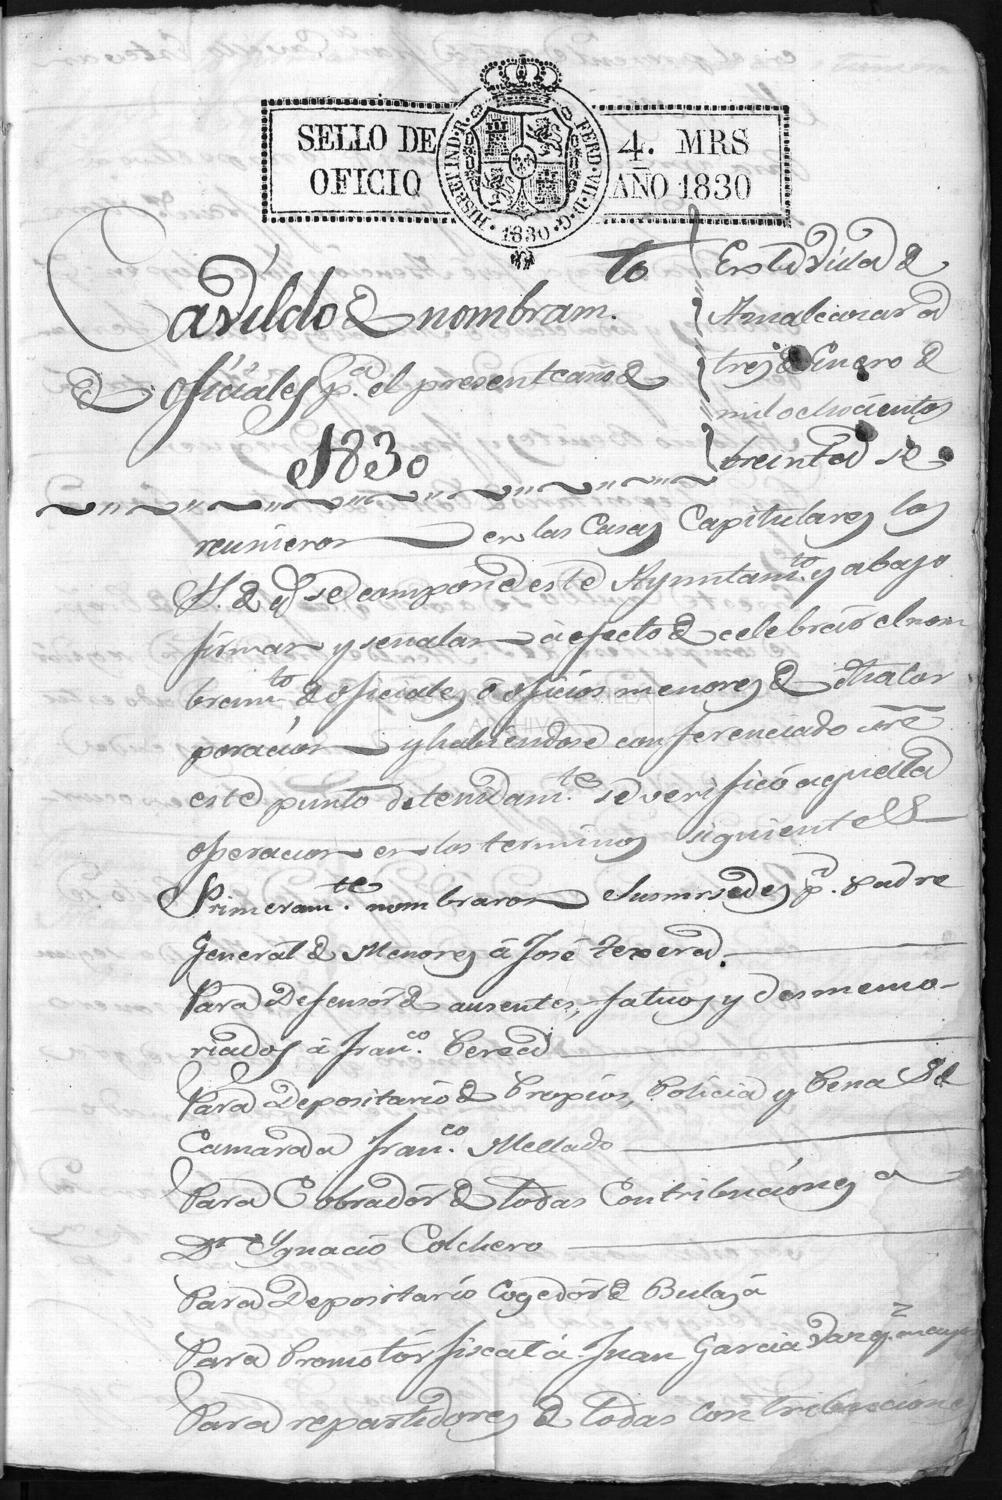 SELLO DE OFICIO
4. MRS
AÑO 1830
HISP. ET IND. R. FERD. VII. D. G.
1830
Cavildo de nombram.to
de oficiales p.a el presente año de
1830
En la Villa de
Aznalcazar a
tres de Enero de
mil ochocientos
treinta se
reunieron en las Casas Capitulares los
S. de q.e se compone este Ayuntam.to y abajo
firman y señalan á efecto de celebrar el nom
bram.to de oficiales ó oficios menores de esta Cor
poracion y habiendose conferenciado sre
este punto detenidam.te se verificó aquella
operacion en los terminos siguientes
Primeram.te nombraron Susmrsedes p.a Padre
General de Menores á José Texera.
Para Defensor de ausentes, fatuos y desmemo-
riados á Fran.co Perea
Para Depositario de Propios, Policia y Pena de
Camara a Fran.co Mellado
Para Cobrador de todas Contribuciones a
Dn Ygnacio Colchero
Para Depositario Cogedor de Bulas á
Para Promotor fiscal á Juan Garcia Vazq.z mayor
Para repartidores de todas contribuciones